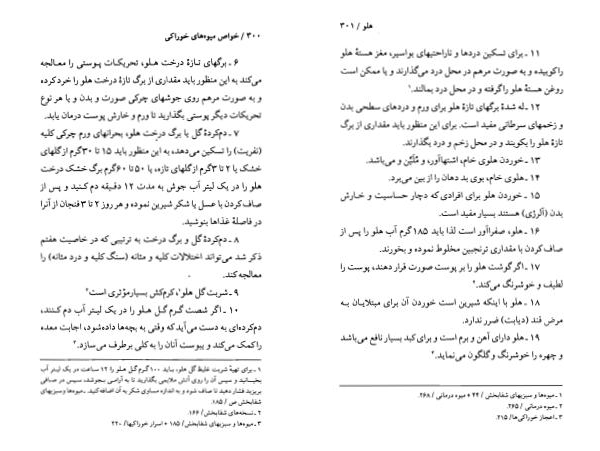 ۳۰۰ / خواص میوه‌های خوراکی
۶ ـ برگهای تازهٔ درخت هلو، تحریکات پوستی را معالجه
می‌کند به این منظور باید مقداری از برگ تازهٔ درخت هلو را خرد کرده
و به صورت مرهم روی جوشهای چرکی صورت و بدن و یا هر نوع
تحریکات دیگر پوستی بگذارید تا ورم و خارش پوست درمان یابد.
۷ ـ دم‌کردهٔ گل یا برگ درخت هلو، بحرانهای ورم چرکی کلیه
(نفریت) را تسکین می‌دهد، به این منظور باید ۱۵ تا ۳۰ گرم از گلهای
خشک یا ۲ تا ۳ گرم از گلهای تازه، یا ۵۰ تا ۶۰ گرم برگ خشک درخت
هلو را در یک لیتر آب جوش به مدت ۱۲ دقیقه دم کنید و پس از
صاف کردن با عسل یا شکر شیرین نموده و هر روز ۲ تا ۳ فنجان از آنرا
در فاصلهٔ غذاها بنوشید.
۸ ـ دم‌کردهٔ گل و برگ درخت به ترتیبی که در خاصیت هفتم
ذکر شد می‌تواند اختلالات کلیه و مثانه (سنگ کلیه و درد مثانه) را
معالجه کند.
۹ ـ شربت گل هلو۱، کرم‌کش بسیار مؤثری است۲
۱۰ ـ اگر شصت گرم گل هلو را در یک لیتر آب دم کنند،
دم‌کرده‌ای به دست می‌آید که وقتی به بچه‌ها داده شود، اجابت معده
را کمک می‌کند و یبوست آنان را به کلی برطرف می‌سازد.۳
۱ ـ برای تهیهٔ شربت غلیظ گل هلو، باید ۱۰۰ گرم گل هلو را ۱۲ ساعت در یک لیتر آب
بخیسانید و سپس آن را روی آتش ملایمی بگذارید تا به آرامی بجوشد، سپس در صافی
بریزید فشار دهید تا صاف شود و به اندازه مساوی شکر به آن اضافه کنید. ـ میوه‌ها و سبزیهای
شفابخش ص / ۱۸۵.
۲ ـ نسخه‌های شفابخش / ۱۶۶.
۳ ـ میوه‌ها و سبزیهای شفابخش / ۱۸۵ + اسرار خوراکیها / ۲۲۰.
هلو / ۳۰۱
۱۱ ـ برای تسکین دردها و ناراحتیهای بواسیر، مغز هستهٔ هلو
را کوبیده و به صورت مرهم در محل درد می‌گذارند و یا ممکن است
روغن هستهٔ هلو را گرفته و در محل درد بمالند.۱
۱۲ ـ له شدهٔ برگهای تازهٔ هلو برای ورم و دردهای سطحی بدن
و زخمهای سرطانی مفید است. برای این منظور باید مقداری از برگ
تازهٔ هلو را بکوبند و در محل زخم و درد بگذارند.
۱۳ ـ خوردن هلوی خام، اشتهاآور، و مُلَیِّن و می‌باشد.
۱۴ ـ هلوی خام، بوی بد دهان را از بین می‌برد.
۱۵ ـ خوردن هلو برای افرادی که دچار حساسیت و خارش
بدن (آلرژی) هستند بسیار مفید است.
۱۶ ـ هلو، صفراآور است لذا باید ۱۸۵ گرم آب هلو را پس از
صاف کردن با مقداری ترنجبین مخلوط نموده و بخورند.
۱۷ ـ اگر گوشت هلو را بر پوست صورت قرار دهند، پوست را
لطیف و خوشرنگ می‌کند.۲
۱۸ ـ هلو با اینکه شیرین است خوردن آن برای مبتلایان به
مرض قند (دیابت) ضرر ندارد.
۱۹ ـ هلو دارای آهن و برم است و برای کبد بسیار نافع می‌باشد
و چهره را خوشرنگ و گلگون می‌نماید.۳
۱ ـ میوه‌ها و سبزیهای شفابخش / ۴۴ + میوه درمانی / ۲۶۸.
۲ ـ میوه درمانی / ۲۶۵.
۳ ـ اعجاز خوراکی‌ها / ۲۱۵.